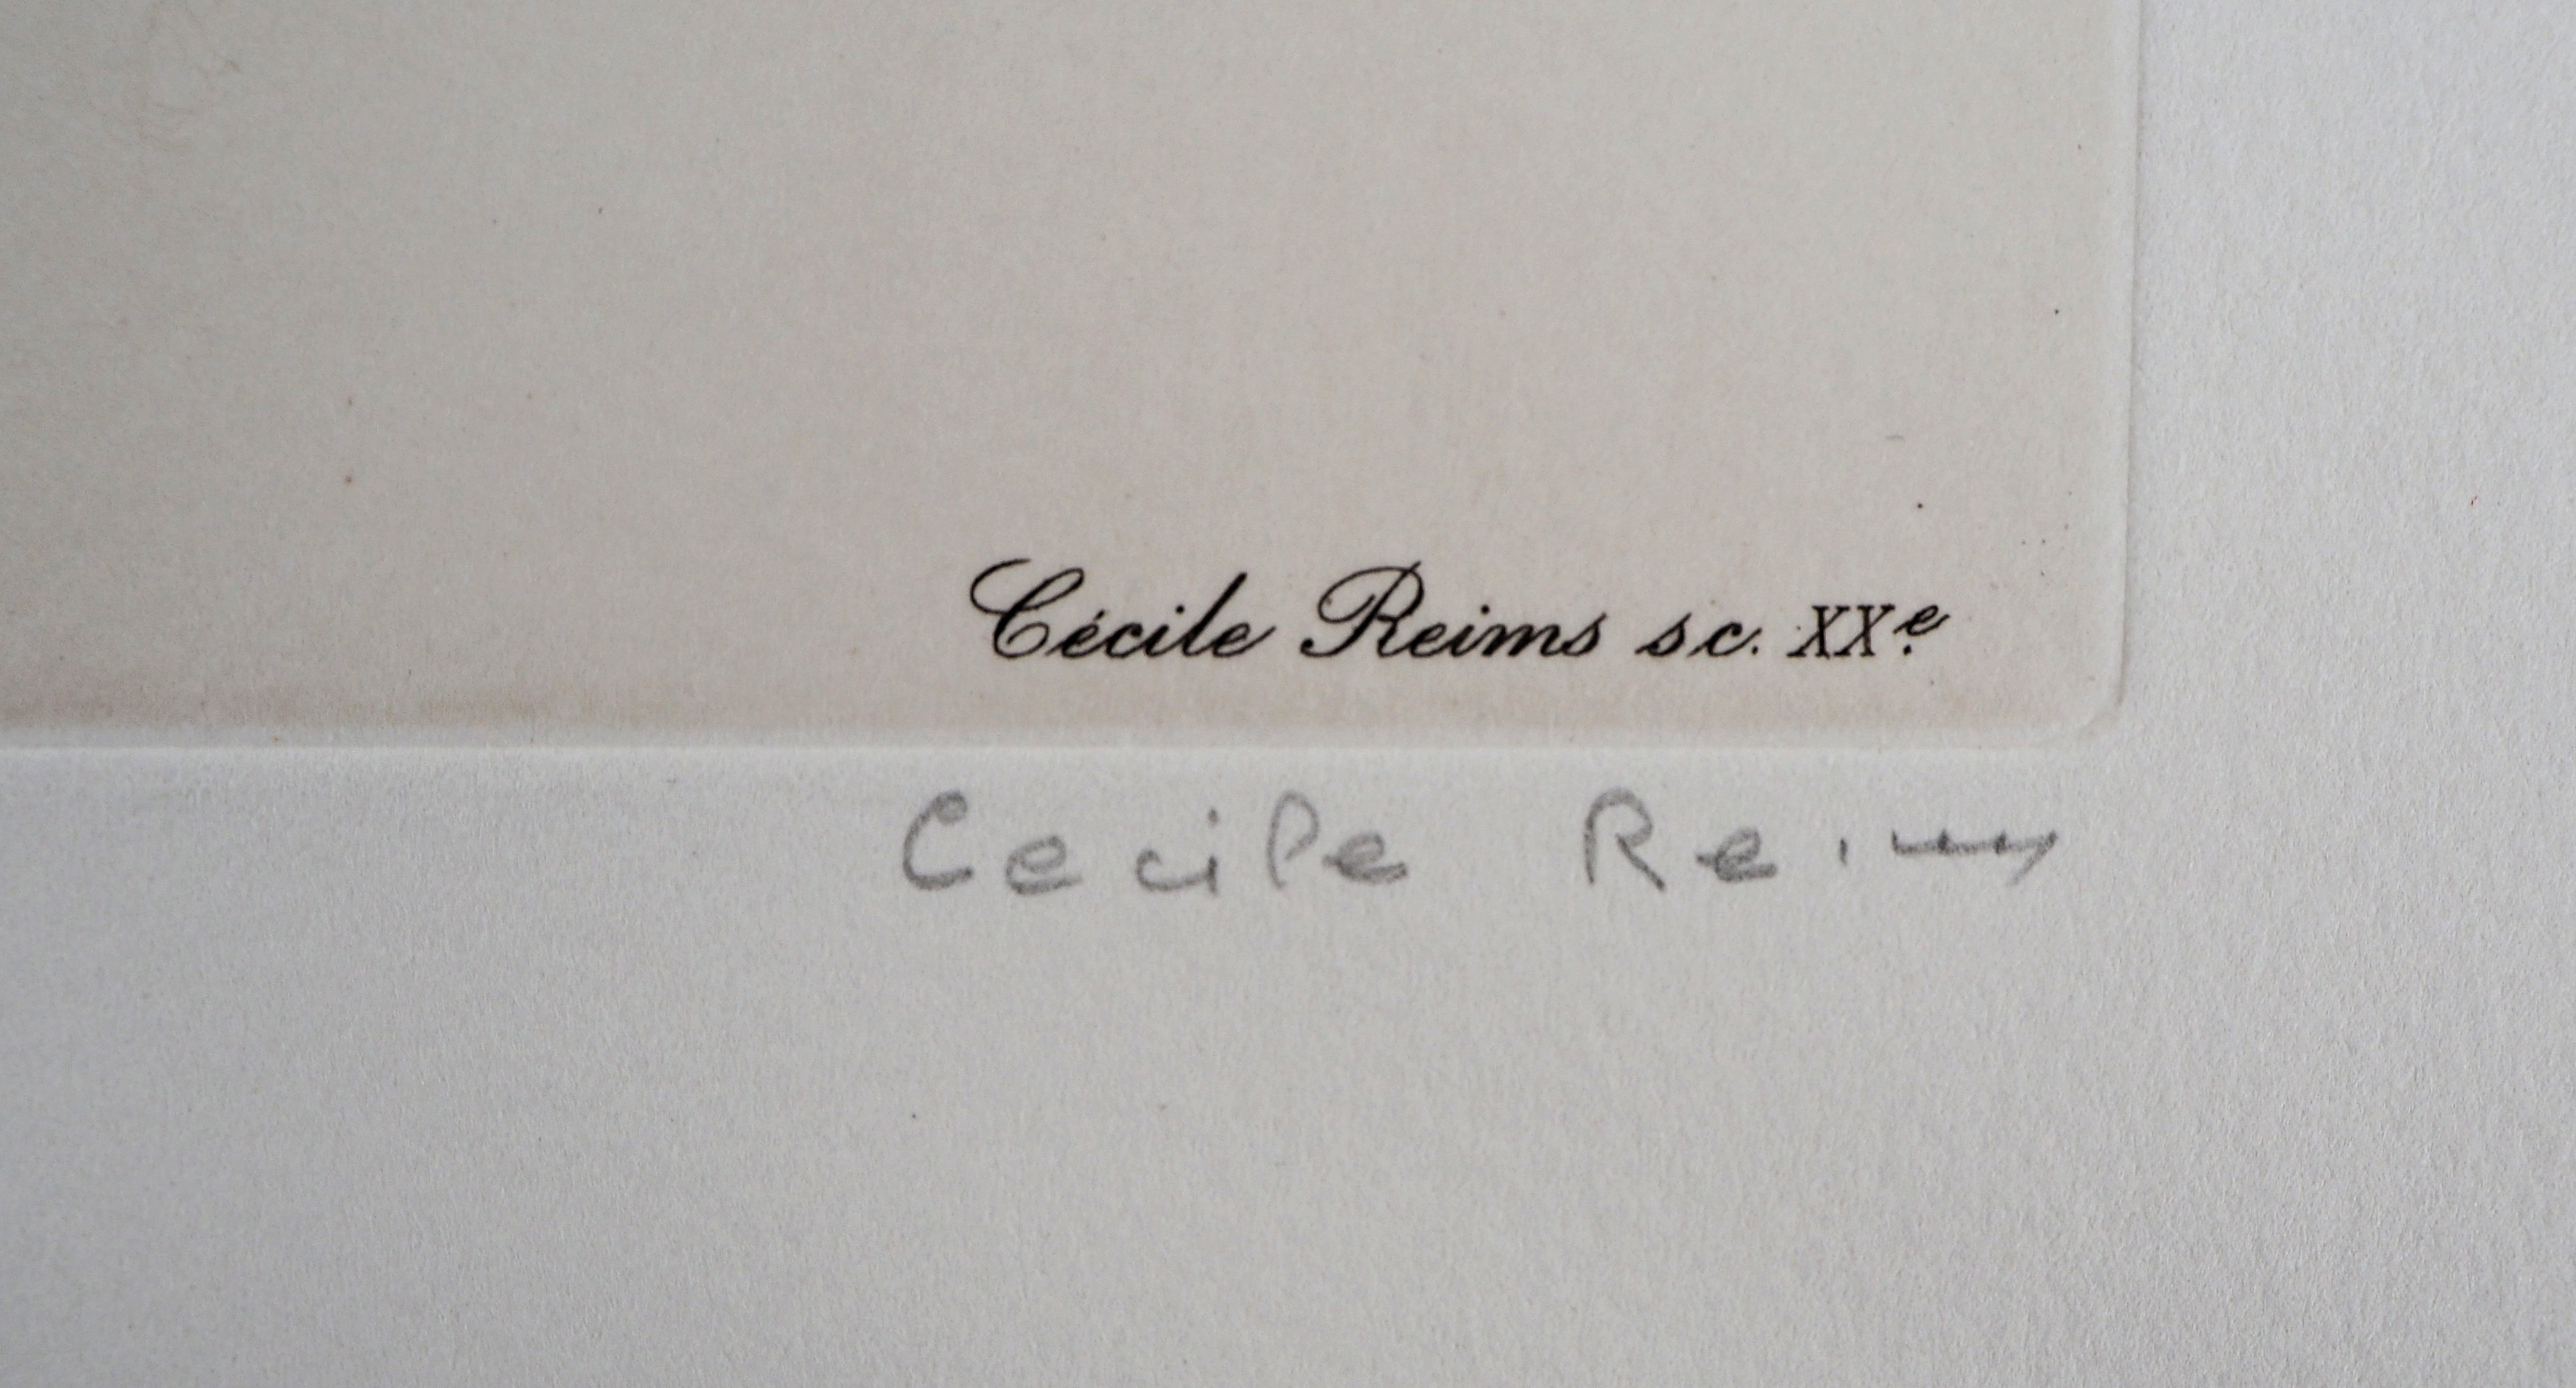 Cécile Reims sc. XXe.
Cecile Reims